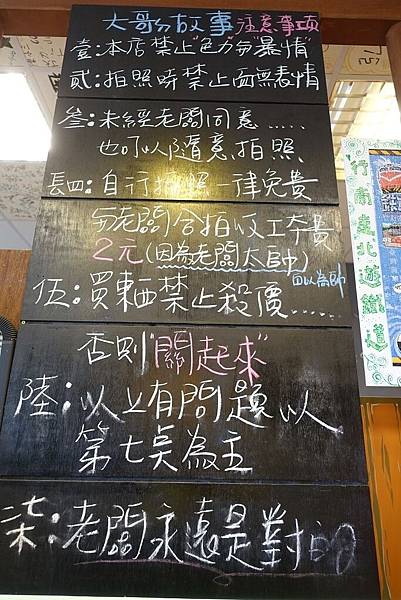 大哥ㄉ故事注意事項
壹:本店禁止"色"力"ㄉ"暴"情"
貳:拍照時禁止面無表情
叁:未經老闆同意.....
也可以隨意拍照
肆:自行拍照一律免費
ㄅ老闆合拍收工本費
2元(因為老闆太帥)
自以為帥
伍:買東西禁止殺價.....
否則"關起來"
陸:以上有問題以
第七點為主
柒:老闆永遠是對的
竹南追北遊鐵道